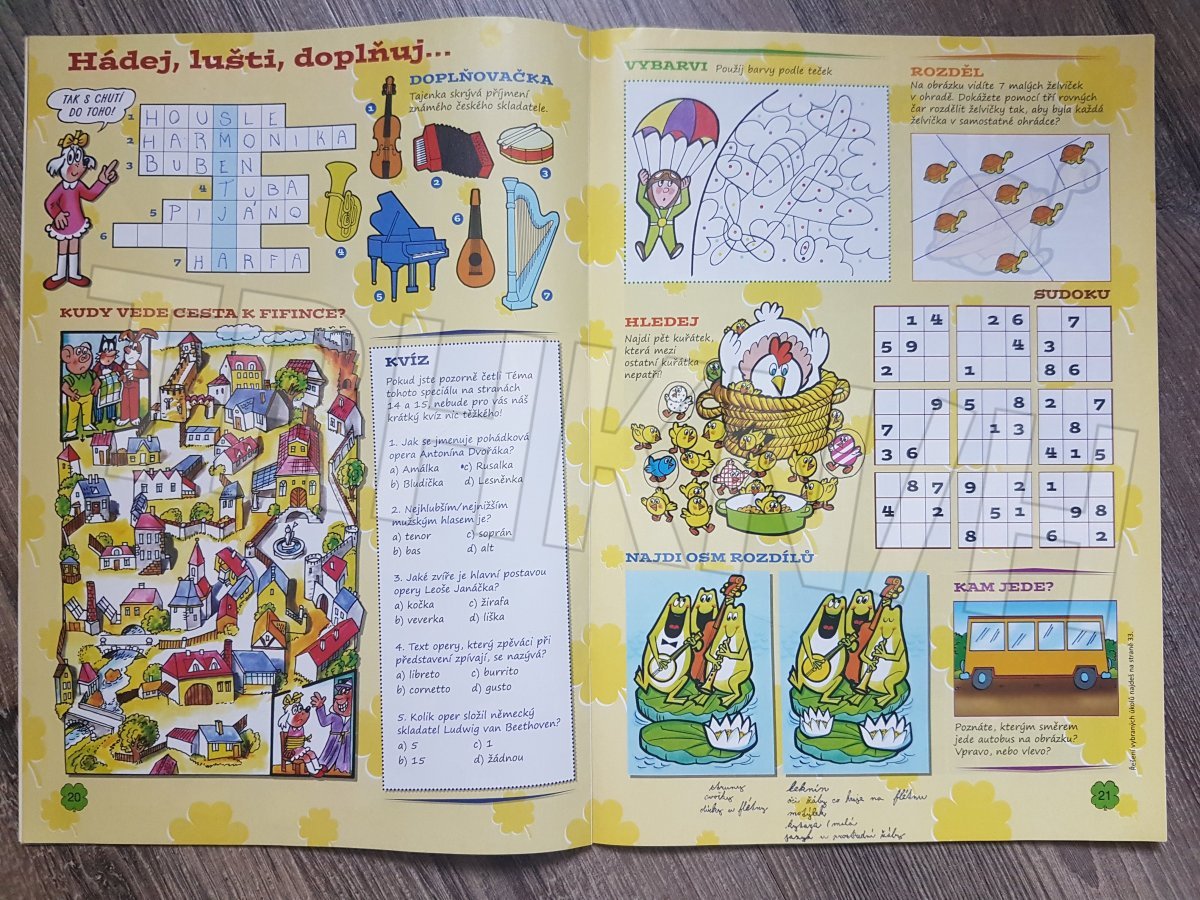 Hádej, lušti, doplňuj...
TAK S CHUTÍ
DO TOHO!
DOPLŇOVAČKA
Tajenka skrývá příjmení
známého českého skladatele.
1 HOUSLE
2 HARMONIKA
3 BUBEN
4 TUBA
5 PIJÁNO
6
7 HARFA
1
2
3
4
5
6
7
KUDY VEDE CESTA K FIFINCE?
KVÍZ
Pokud jste pozorně četli Téma
tohoto speciálu na stranách
14 a 15, nebude pro vás náš
krátký kvíz nic těžkého!
1. Jak se jmenuje pohádková
opera Antonína Dvořáka?
a) Amálka c) Rusalka
b) Bludička d) Lesněnka
2. Nejhlubším/nejnižším
mužským hlasem je?
a) tenor c) soprán
b) bas d) alt
3. Jaké zvíře je hlavní postavou
opery Leoše Janáčka?
a) kočka c) žirafa
b) veverka d) liška
4. Text opery, který zpěváci při
představení zpívají, se nazývá?
a) libreto c) burrito
b) cornetto d) gusto
5. Kolik oper složil německý
skladatel Ludwig van Beethoven?
a) 5 c) 1
b) 15 d) žádnou
20
VYBARVI Použij barvy podle teček
ROZDĚL
Na obrázku vidíte 7 malých želviček
v ohradě. Dokážete pomocí tří rovných
čar rozdělit želvičky tak, aby byla každá
želvička v samostatné ohrádce?
HLEDEJ
Najdi pět kuřátek,
která mezi
ostatní kuřátka
nepatří!
SUDOKU
1 4 2 6 7
5 9 4 3
2 1 8 6
9 5 8 2 7
7 1 3 8
3 6 4 1 5
8 7 9 2 1
4 2 5 1 9 8
8 6 2
NAJDI OSM ROZDÍLŮ
KAM JEDE?
Poznáte, kterým směrem
jede autobus na obrázku?
Vpravo, nebo vlevo?
Řešení vybraných úkolů najdeš na straně 33.
struny
dírky u flétny
leknín
oči žáby co hraje na flétnu
motýlek
jazyk u prostřední žáby
21